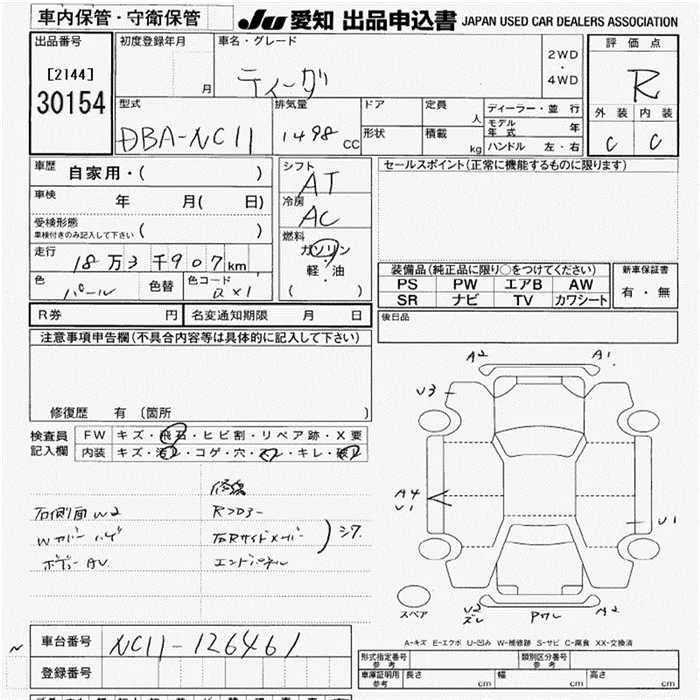 車内保管・守衛保管
JU 愛知 出品申込書 JAPAN USED CAR DEALERS ASSOCIATION
出品番号
[2144]
30154
初度登録年月
月
車名・グレード
ティーダ
2WD
・
4WD
評価点
R
外装 内装
C C
型式
DBA-NC11
排気量
1498 CC
ドア
形状
定員
人
積載
kg
ディーラー・並行
モデル年式 年
ハンドル 左・右
車歴
自家用・( )
車検
年 月( 日)
受検形態
車検付きのみ記入して下さい ( )
走行
18万3千907km
色
パール
色替
色コード
QX1
シフト
AT
冷房
AC
燃料
ガソリン
・
軽・油
( )
セールスポイント(正常に機能するものに限ります)
装備品(純正品に限り○をつけてください)
PS PW エアB AW
SR ナビ TV カワシート
新車保証書
有・無
R券 円
名変通知期限 月 日
後日品
注意事項申告欄(不具合内容等は具体的に記入して下さい)
修復歴 有 (箇所 )
検査員
記入欄
FW キズ・飛石・ヒビ割・リペア跡・X要
内装 キズ・汚レ・コゲ・穴・スレ・キレ・破レ
修復
右側面 W2
Rフロアー
Wカバー ハゲ
右Rサイドメンバー
シワ
ボデー AU
エンドパネル
A2 A1
U3
A4
U1
U1
スペア
U2
ズレ
PウレA2
A-キズ E-エクボ U-凹み W-補修跡 S-サビ C-腐食 XX-交換済
車台番号
NC11-126461
登録番号
形式指定番号
参考
類別区分番号
参考
車庫証明用
参考
長さ cm
幅 cm
高さ cm